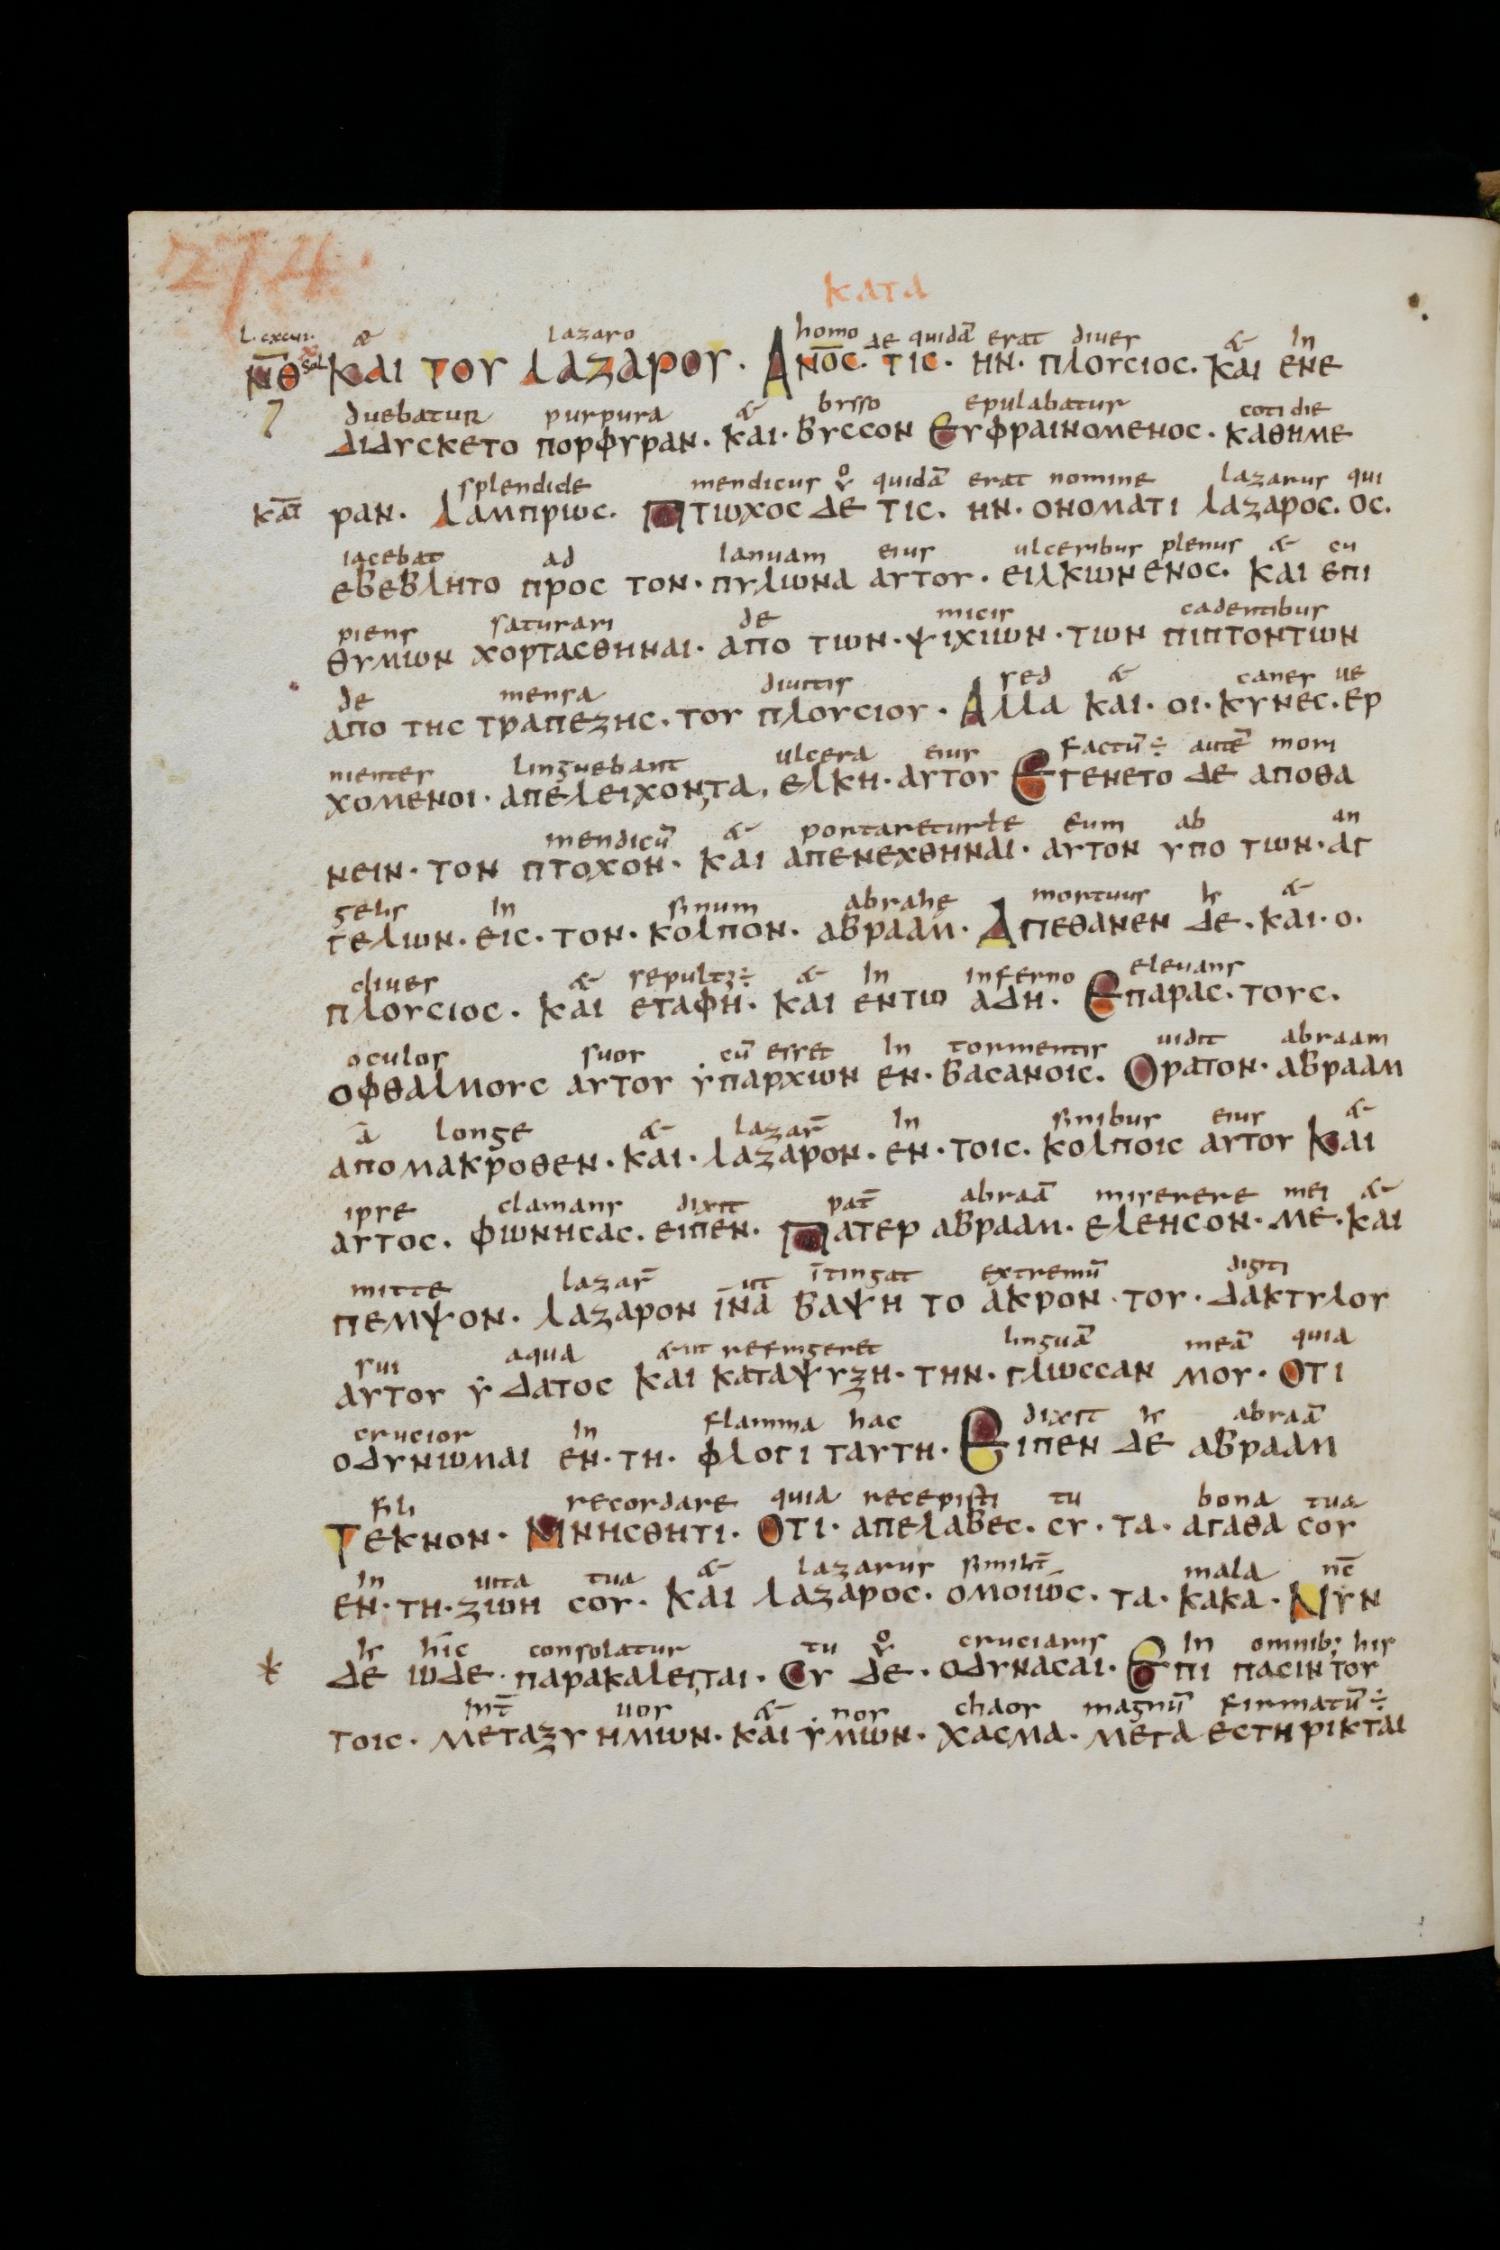 274.
ΚΑΤΑ
& lazaro homo de quidā erat diues & In
Ν̅Θ ΚΑΙ ΤΟΥ ΛΑΖΑΡΟΥ· ΑΝ̅Ο̅C· ΤΙC· ΗΝ· ΠΛΟΥCΙΟC· ΚΑΙ ΕΝΕ
duebatur purpura & bysso epulabatur cotidie
ΔΙΔΥCΚΕΤΟ ΠΟΡΦΥΡΑΝ· ΚΑΙ· ΒΥCCΟΝ ΕΥΦΡΑΙΝΟΜΕΝΟC· ΚΑΘΗΜΕ
splendide mendicus v̊ quidā erat nomine lazarus qui
ΚΑΤ̅ ΡΑΝ· ΛΑΜΠΡΩC· ΠΤΩΧΟC ΔΕ ΤΙC· ΗΝ· ΟΝΟΜΑΤΙ ΛΑΖΑΡΟC· ΟC·
iacebat ad Ianuam eius ulceribus plenus & cu
ΕΒΕΒΛΗΤΟ ΠΡΟC ΤΟΝ· ΠΥΛΩΝΑ ΑΥΤΟΥ· ΕΙΛΚΩΜΕΝΟC· ΚΑΙ ΕΠΙ
piens saturari de micis cadentibus
ΘΥΜΩΝ ΧΟΡΤΑCΘΗΝΑΙ· ΑΠΟ ΤΩΝ· ΨΙΧΙΩΝ· ΤΩΝ ΠΙΠΤΟΝΤΩΝ
de mensa diuitis sed & canes ue
ΑΠΟ ΤΗC ΤΡΑΠΕΖΗC· ΤΟΥ ΠΛΟΥCΙΟΥ· ΑΛΛΑ ΚΑΙ· ΟΙ· ΚΥΝΕC· ΕΡ
nientes linguebant ulcera eius Factū ÷ autē mori
ΧΟΜΕΝΟΙ· ΑΠΕΛΕΙΧΟΝ,ΤΑ, ΕΛΚΗ· ΑΥΤΟΥ ΕΓΕΝΕΤΟ ΔΕ ΑΠΟΘΑ
mendicū & portareturle eum ab an
ΝΕΙΝ· ΤΟΝ ΠΤΟΧΟΝ· ΚΑΙ ΑΠΕΝΕΧΘΗΝΑΙ· ΑΥΤΟΝ ΥΠΟ ΤΩΝ· ΑΓ
gelis In sinum abrahę mortuus &
ΓΕΛΩΝ· ΕΙC· ΤΟΝ· ΚΟΛΠΟΝ· ΑΒΡΑΑΜ· ΑΠΕΘΑΝΕΝ ΔΕ· ΚΑΙ· Ο·
diues & sepultꝫ ÷ & In inferno eleuans
ΠΛΟΥCΙΟC· ΚΑΙ ΕΤΑΦΗ· ΚΑΙ ΕΝΤΩ ΑΔΗ· ΕΠΑΡΑC· ΤΟΥC·
oculos suos cū esset In tormentis uidit abraam
ΟΦΘΑΛΜΟΥC ΑΥΤΟΥ ΥΠΑΡΧΩΝ ΕΝ· ΒΑCΑΝΟΙC· ΟΡΑΤΟΝ· ΑΒΡΑΑΜ
ā longe & lazar̄ In sinibus eius &
ΑΠΟΜΑΚΡΟΘΕΝ· ΚΑΙ· ΛΑΖΑΡΟΝ· ΕΝ· ΤΟΙC· ΚΟΛΠΟΙC ΑΥΤΟΥ ΚΑΙ
ipse clamans dixit pat̄ abraā miserere mei &
ΑΥΤΟC· ΦΩΝΗCΑC· ΕΙΠΕΝ· ΠΑΤΕΡ ΑΒΡΑΑΜ· ΕΛΕΗCΟΝ· ΜΕ· ΚΑΙ
mitte lazar̄ ut ītingat extremū digiti
ΠΕΜΨΟΝ· ΛΑΖΑΡΟΝ ΙΝΑ ΒΑΨΗ ΤΟ ΑΚΡΟΝ· ΤΟΥ· ΔΑΚΤΥΛΟΥ
sui aqua & ut refrigeret linguā meā quia
ΑΥΤΟΥ ΥΔΑΤΟC ΚΑΙ ΚΑΤΑΨΥΖΗ· ΤΗΝ· ΓΛΩCCΑΝ ΜΟΥ· ΟΤΙ
crucior In flamma hac dixit abraā
ΟΔΥΝΩΜΑΙ ΕΝ· ΤΗ· ΦΛΟΓΙ ΤΑΥΤΗ· ΕΙΠΕΝ ΔΕ ΑΒΡΑΑΜ
Fili recordare quia recepisti tu bona tua
ΤΕΚΝΟΝ· ΜΝΗCΘΗΤΙ· ΟΤΙ· ΑΠΕΛΑΒΕC· CΥ· ΤΑ· ΑΓΑΘΑ CΟΥ
In uita tua & lazarus similit̄ mala nc̄
ΕΝ· ΤΗ· ΖΩΗ CΟΥ· ΚΑΙ ΛΑΖΑΡΟC· ΟΜΟΙΩC· ΤΑ· ΚΑΚΑ· ΝΥΝ
hic consolatur tu v̊ cruciaris In omnib; his
ΔΕ ΩΔΕ· ΠΑΡΑΚΑΛΕΙ,ΤΑΙ· CΥ ΔΕ· ΟΔΥΝΑCΑΙ· ΕΠΙ ΠΑCΙΝ ΤΟΥ
Int̄ uos & nos chaos magnū firmatū ÷
ΤΟΙC· ΜΕΤΑΖΥ ΗΜΩΝ· ΚΑΙ ΥΜΩΝ· ΧΑCΜΑ· ΜΕΓΑ ΕCΤΗΡΙΚΤΑΙ